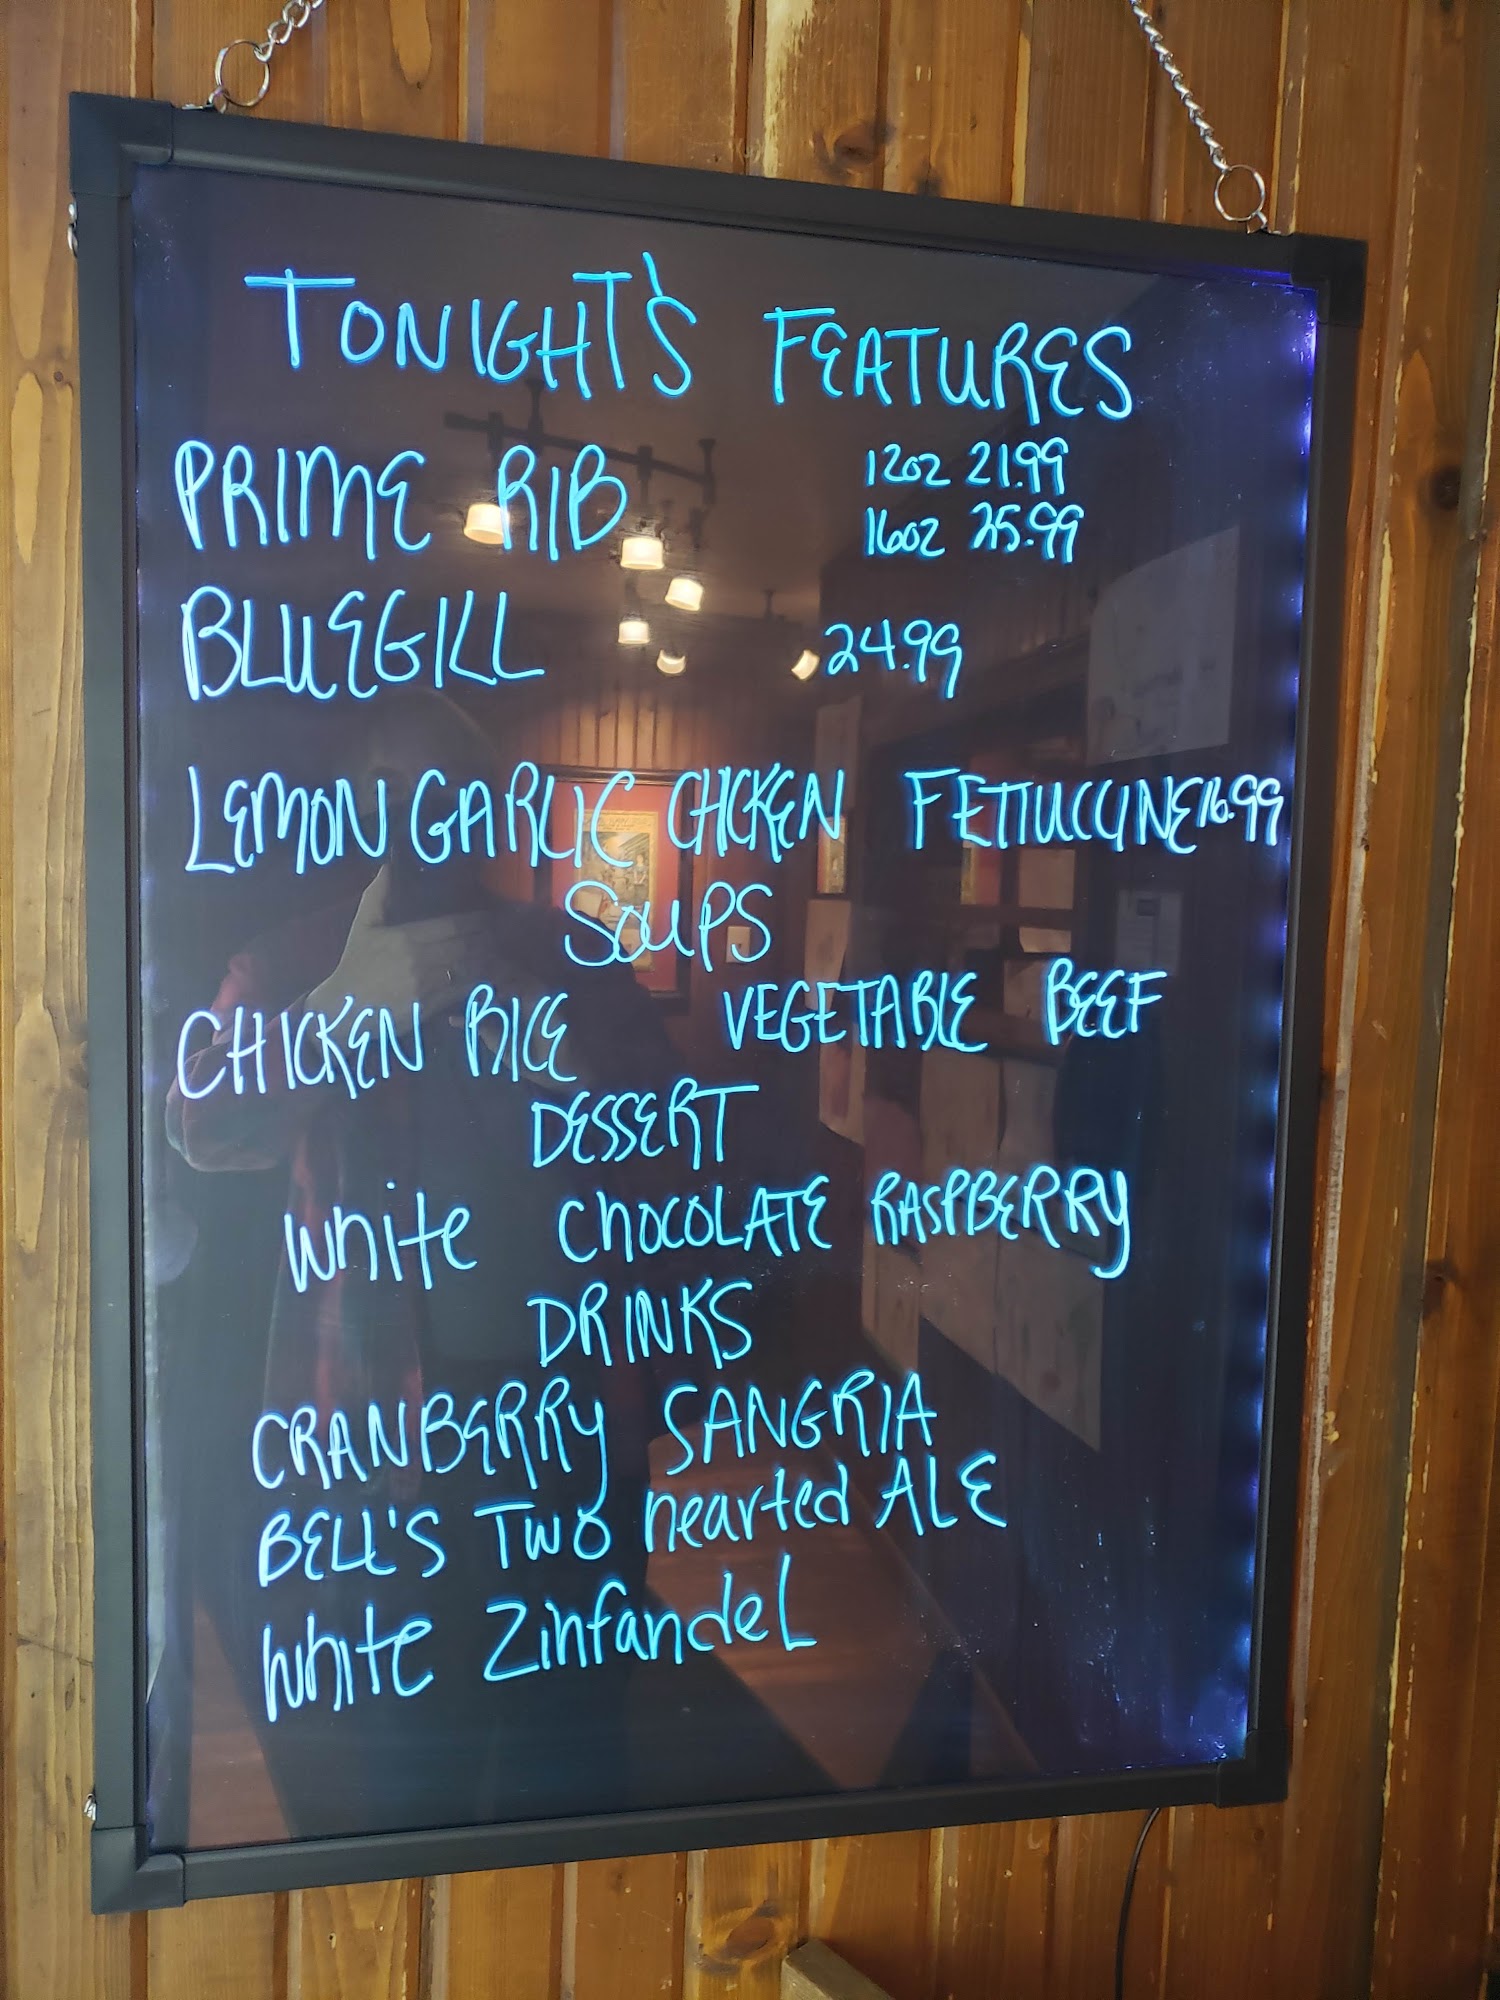 TONIGHT'S FEATURES
PRIME RIB 12oz 21.99
16oz 25.99
BLUEGILL 24.99
LEMON GARLIC CHICKEN FETTUCCINE 16.99
SOUPS
CHICKEN RICE VEGETABLE BEEF
DESSERT
White CHOCOLATE RASPBERRY
DRINKS
CRANBERRY SANGRIA
BELL'S TWO hearted ALE
White ZinfandeL